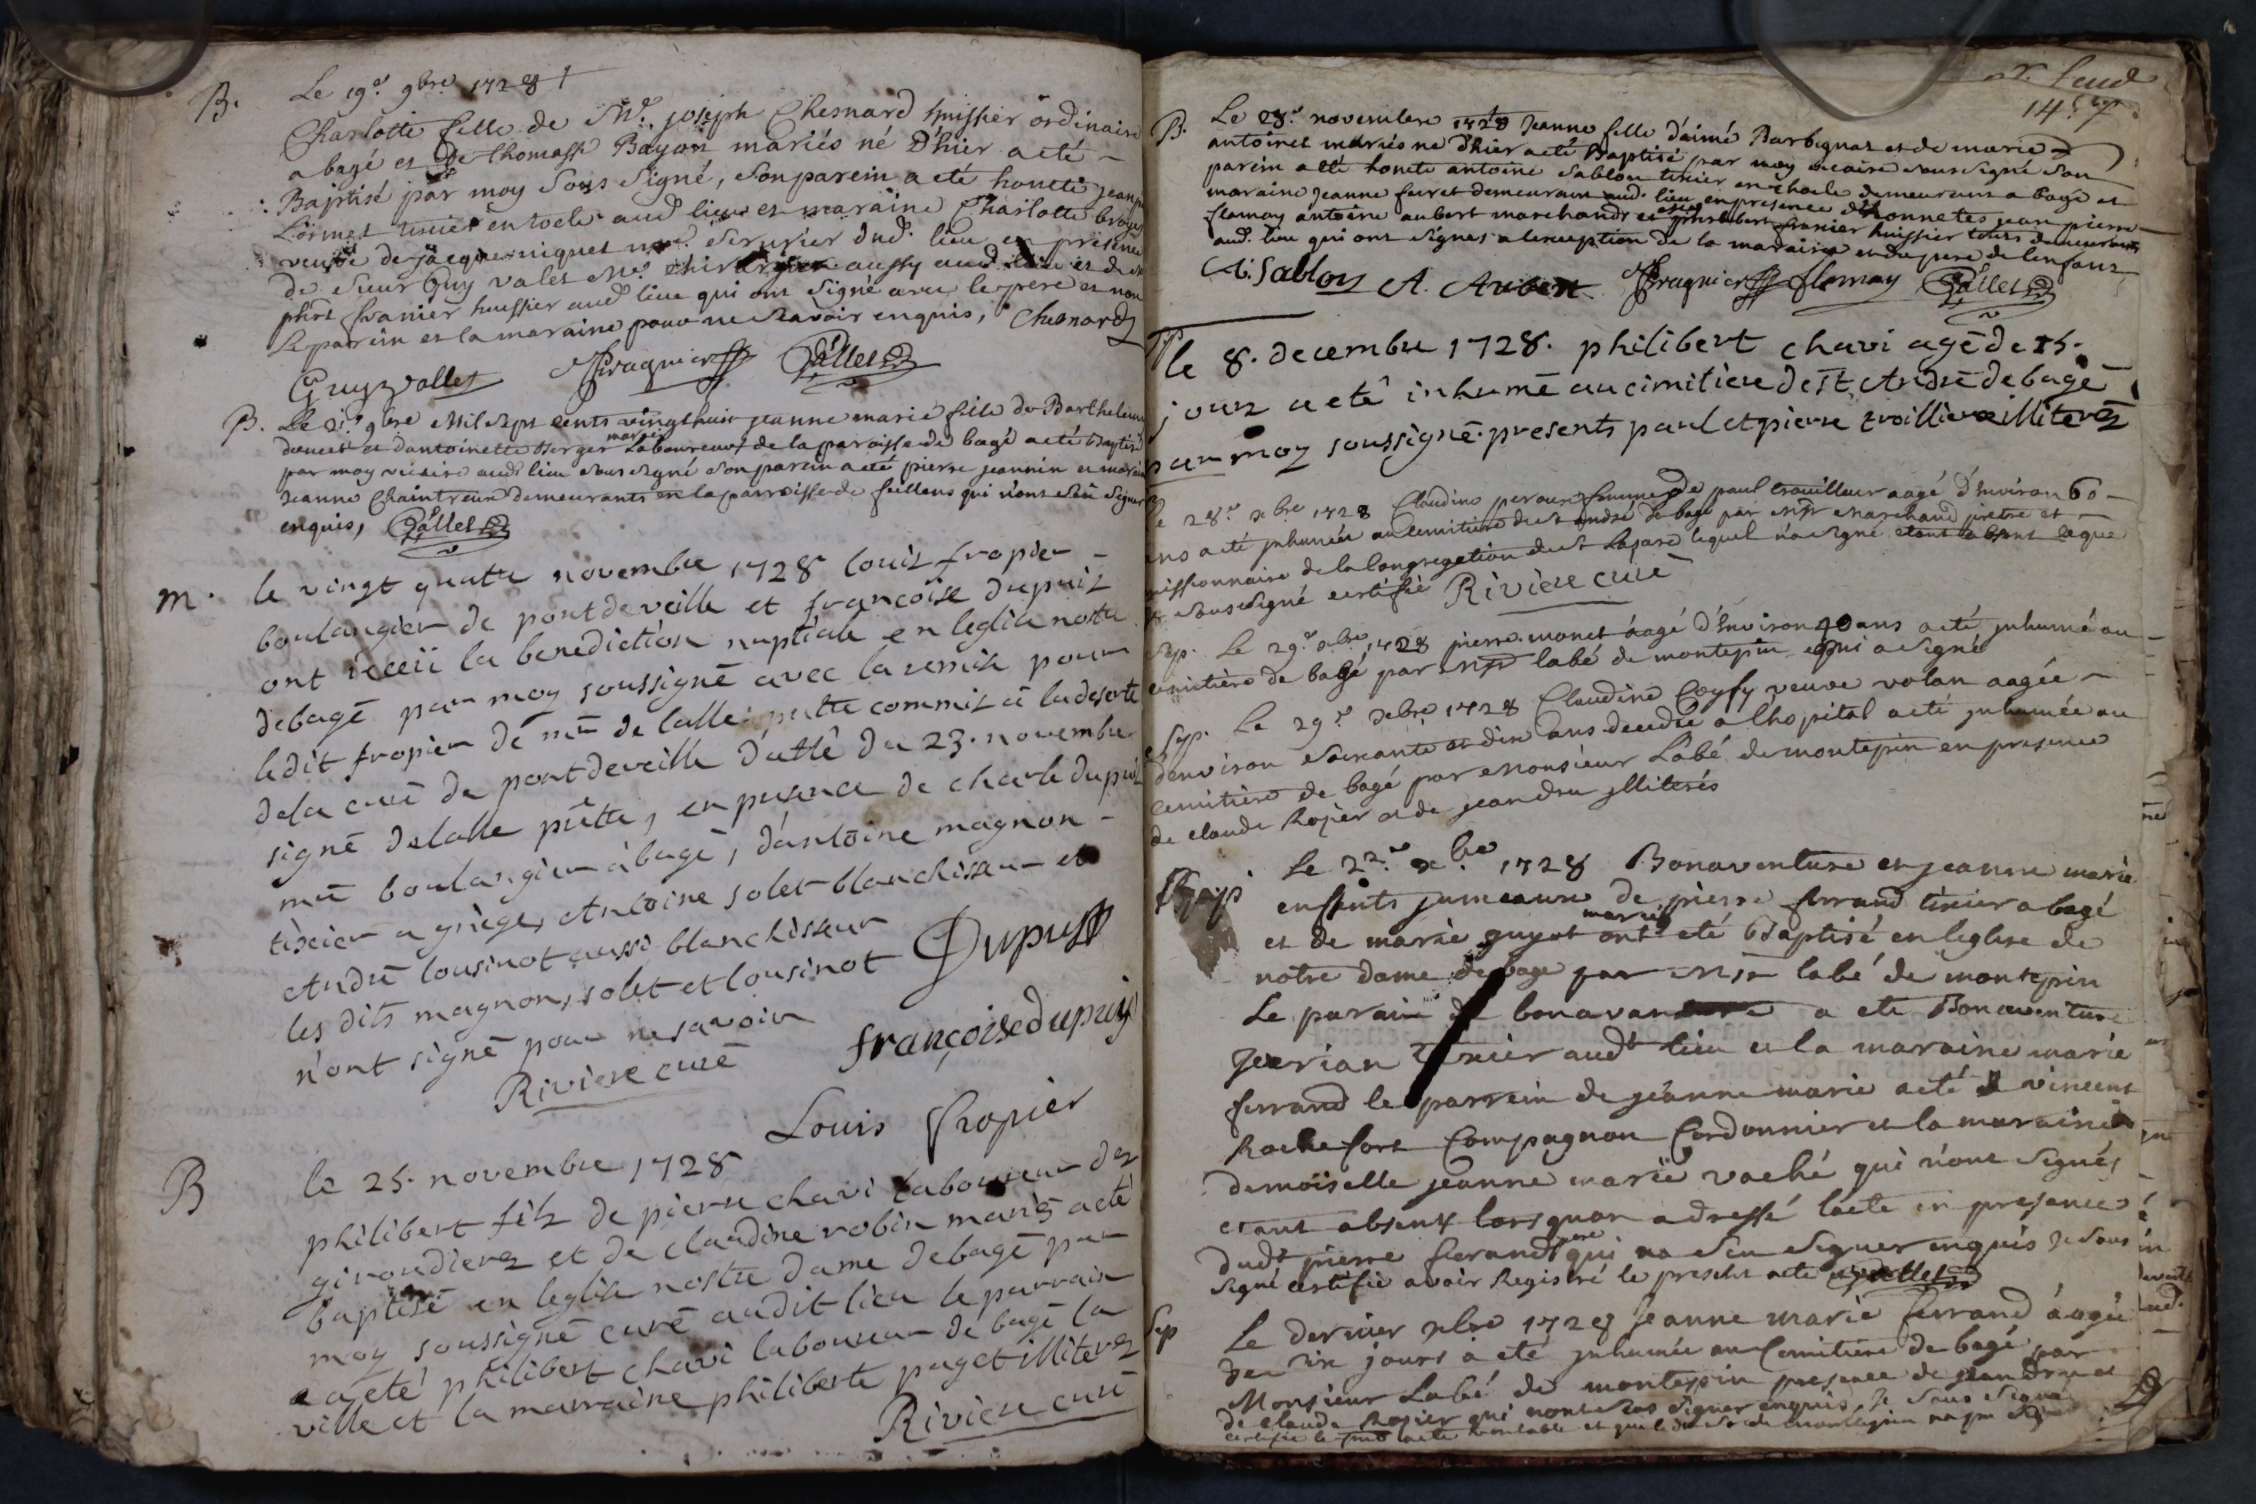 B. Le 19e 9bre 1728 †
Charlotte fille de Me joseph Chesnard huissier ordinaire
a bagé et de thomasse Bayon mariés né d'hier a eté
Baptisé par moy Sous Signé, Son parein a eté honeté jean
Lormet tixier en toele aud lieu et maraine Charlotte
veuve de jacque niquet Serurier dud. lieu en présence
de Sieur Guy valet Me chirurgien aussy aud lieu et de
phirt franier huissier aud lieu qui ont Signé avec le pere et non
le parein et la maraine pour ne Scavoir enquis, Chesnard
Guyzvallet Fraguier Pallet
B. Le 21e 9bre Mil Sept cents vingt huit jeanne marie fille de Barthelemy
doucet et d'antoinette Berger mariés Laboureux de la paroisse de bagé a eté Baptisé
par moy vicaire aud lieu Sous Signé Son parein a eté pierre jeannin et maraine
Jeanne Chaintreux demeurants en la parroisse de feillens qui n'ont Sçu Signer
enquis, Pallet
m. le vingt quatre novembre 1728 louis fropier
boulangier de pont de veille et françoise dupuis
ont receü la benediction nuptiale en leglise nostre
de bagé par moy soussigné avec la remise pour
ledit fropier de mre de lalle prettre commis à la deserte
de la cure de pont de veille dattê du 23. novembre
signé delalle prêtre, en presence de charle dupuis
me boulangier à bagé, d'antoine magnon
tixier a grièges, Antoine solet blanchisseur et
André lousinot aussi blanchisseur
les dits magnon, solet et lousinot
n'ont signé pour ne savoir
Dupuis
Riviere curé
françoise dupuis
Louis fropier
B le 25. novembre 1728
philibert fils de pierre chavi laboureur des
girondieres et de claudine robin mariés a eté
baptisé en leglise nostre dame de bagé par
moy soussigné curé audit lieu le parrain
a eté philibert chavi laboureur de bagé la
ville et la marraine philiberte puget illiterez
Riviere curé
147
B. Le 28e novembre 1728 Jeanne fille d'aimé Barbignat et de marie
antoinet mariés né d'hier a eté Baptisé par moy vicaire Sous Signé Son
parein a eté honete antoine Sablon tixier en thoele demeurant a bagé et
maraine Jeanne feuret demeurant aud. lieu en presence d'honnetes jean pierre
flamay antoine aubert marchands et philibert franier huissier touts demeurants
aud. lieu qui ont Signés a l'exception de la maraine et du pere de lenfant
A. Sablon A. Aubert Fraguier flamay Pallet
le 8. decembre 1728. philibert chavi agé de 15.
jours a etê inhumé au cimitiere de st. André de bagé
par moy soussigné presents paul et pierre troillier illiterez
Le 28e xbre 1728 Claudine peroux femme de paul trouilleur aagé d'Environ 60
ans a eté Inhumée au cemitiere de St andré de bagé par Mr Marchand prêtre et
missionnaire de la Congregation de St Lazare lequel n'a Signé etant absent ce que
je Soussigné certifie Riviere curé
Sep. Le 29e xbre 1728 pierre monet aagé d'Environ 40 ans a eté Inhumé au
cemitière de bagé par Mr labé de montepin qui a Signé
Sep. Le 29e xbre 1728 Claudine Coyfy veuve volan aagée
d'environ Soixante et dix ans decedée a lhopital a eté Inhumée au
cemitière de bagé par Monsieur Labé de montepin en presence
de claude Rojier et de jean dru illiterés
Bapt. Le 22e xbre 1728 Bonaventure et jeanne marie
enffants jumeaux de pierre ferrand tixier a bagé
et de marie guyot mariés ont eté Baptisé en leglise de
notre dame de bage par Mr labé de montepin
Le parain de bonavanture a ete Bonaventure
Jeverian tixier audt lieu et la maraine marie
ferrand le parrein de jeanne marie a eté vincent
Rochefort Compagnon Cordonnier et la maraine
demoiselle jeanne marie vaché qui n'ont Signés
etant absent lorsquon a dressé lacte en presence
dudt pierre ferrand pere qui na Sçu Signer enquis je Sous
Signé certifie avoir Registré le present acte Pallet
Sep Le dernier xbre 1728 Jeanne marie ferrand âagée
de dix jours a eté Inhumée au Cemitiere de bagé par
Monsieur Labé de montepin presence de jean dru et
de claude Rojier qui n'ont Sçus Signer enquis, Je Sous Signé
certifie le pnt acte veritable et que le dit Sr de montepin na pu Signer